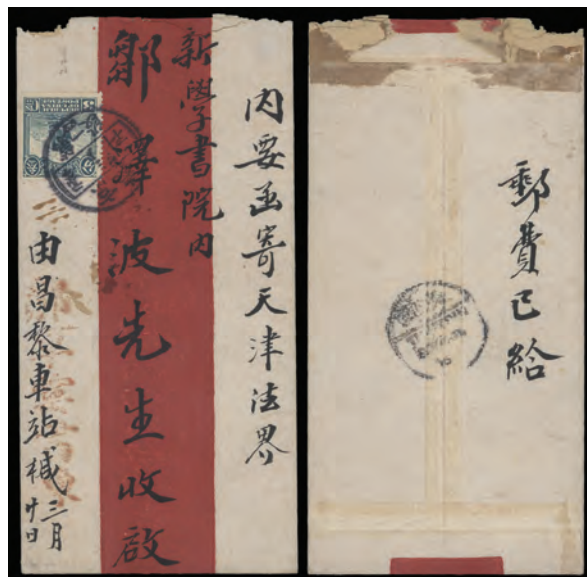 内要函寄天津法界
新學書院內
鄒澤波先生收啟
由昌黎車站椷 三月廿日
郵費已給